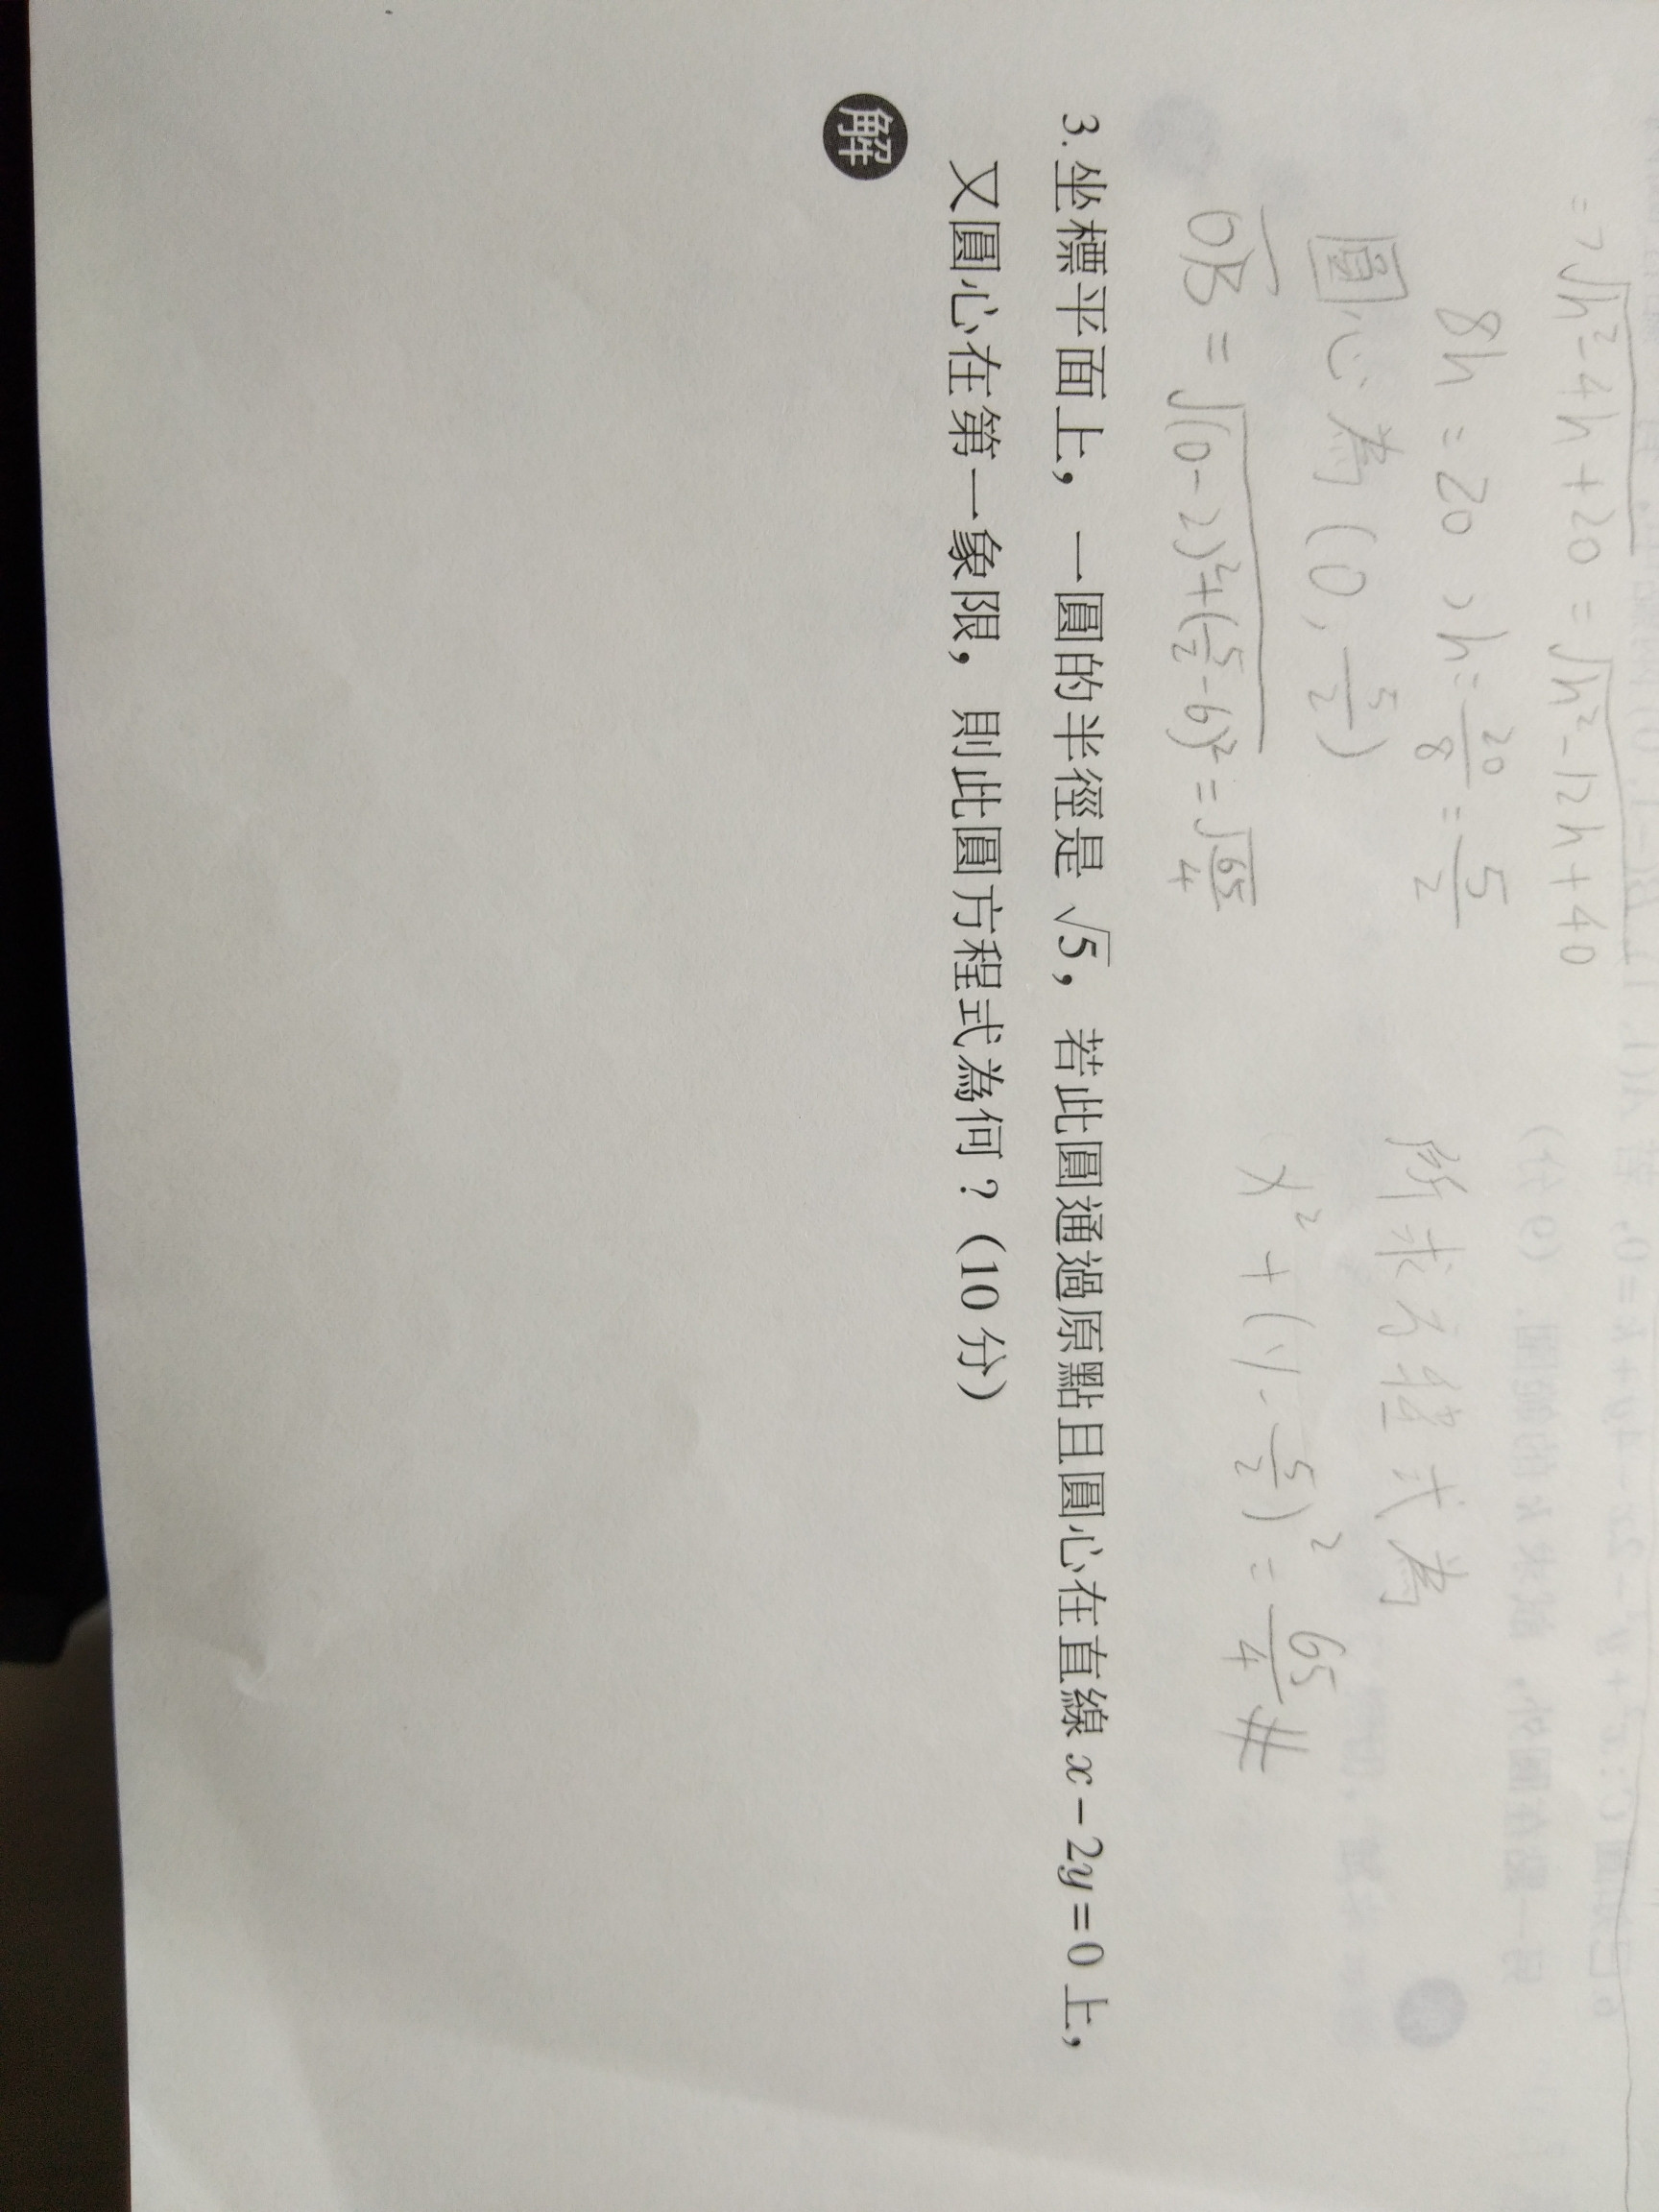 =>√h²-4h+20 = √h²-12h+40
8h = 20 , h = 20/8 = 5/2
圓心為 (0, 5/2)
OB = √(0-2)²+(5/2-6)² = √65/4
所求方程式為
x² + (y-5/2)² = 65/4 #
3.坐標平面上，一圓的半徑是 √5，若此圓通過原點且圓心在直線 x-2y=0 上，
又圓心在第一象限，則此圓方程式為何？(10 分)
解